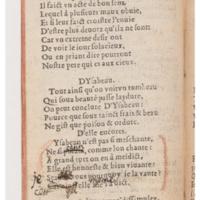 Il faict vn acte de bon sens,
Lequel à plusieurs maux obuie,
Et si leur faict croistre l'enuie
D'estre plus deuotz qu'ilz ne sont
Car vn extreme desir ont
De voir le iour solacieux,
Ou en priant dire pourront
Nostre pere qui es aux cieux.
D'Ysabeau.
Tout ainsi qu'on voit vn tumbeau
Qui soubz beauté passe laydure,
On peut conclure D'Ysabeau:
Pource que soubz tainct fraiz & beau
Ne gist que poison & ordure.
D'elle encores.
Ysabeau n'est pas si meschante,
Ne si comme lon chante:
A grand tort on en à mesdict,
Elle est honneste & bien viuante:
pourquoy ie la vante?
elle l'a dict,